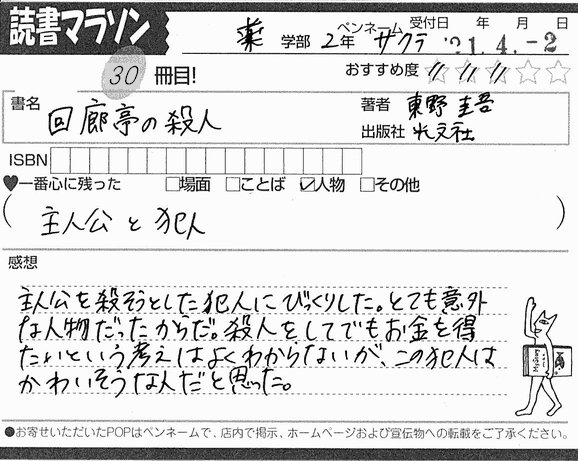 読書マラソン
薬 学部 2年 ペンネーム サクラ 受付日 年 月 日 '21.4.-2
30 冊目! おすすめ度 ☆☆☆☆☆
書名 回廊亭の殺人
著者 東野圭吾
出版社 光文社
ISBN
♥一番心に残った □場面 □ことば ☑人物 □その他
(主人公と犯人)
感想
主人公を殺そうとした犯人にびっくりした。とても意外
な人物だったからだ。殺人をしてでもお金を得
たいという考えはよくわからないが、この犯人は
かわいそうな人だと思った。
●お寄せいただいたPOPはペンネームで、店内で掲示、ホームページおよび宣伝物への転載をご了承ください。